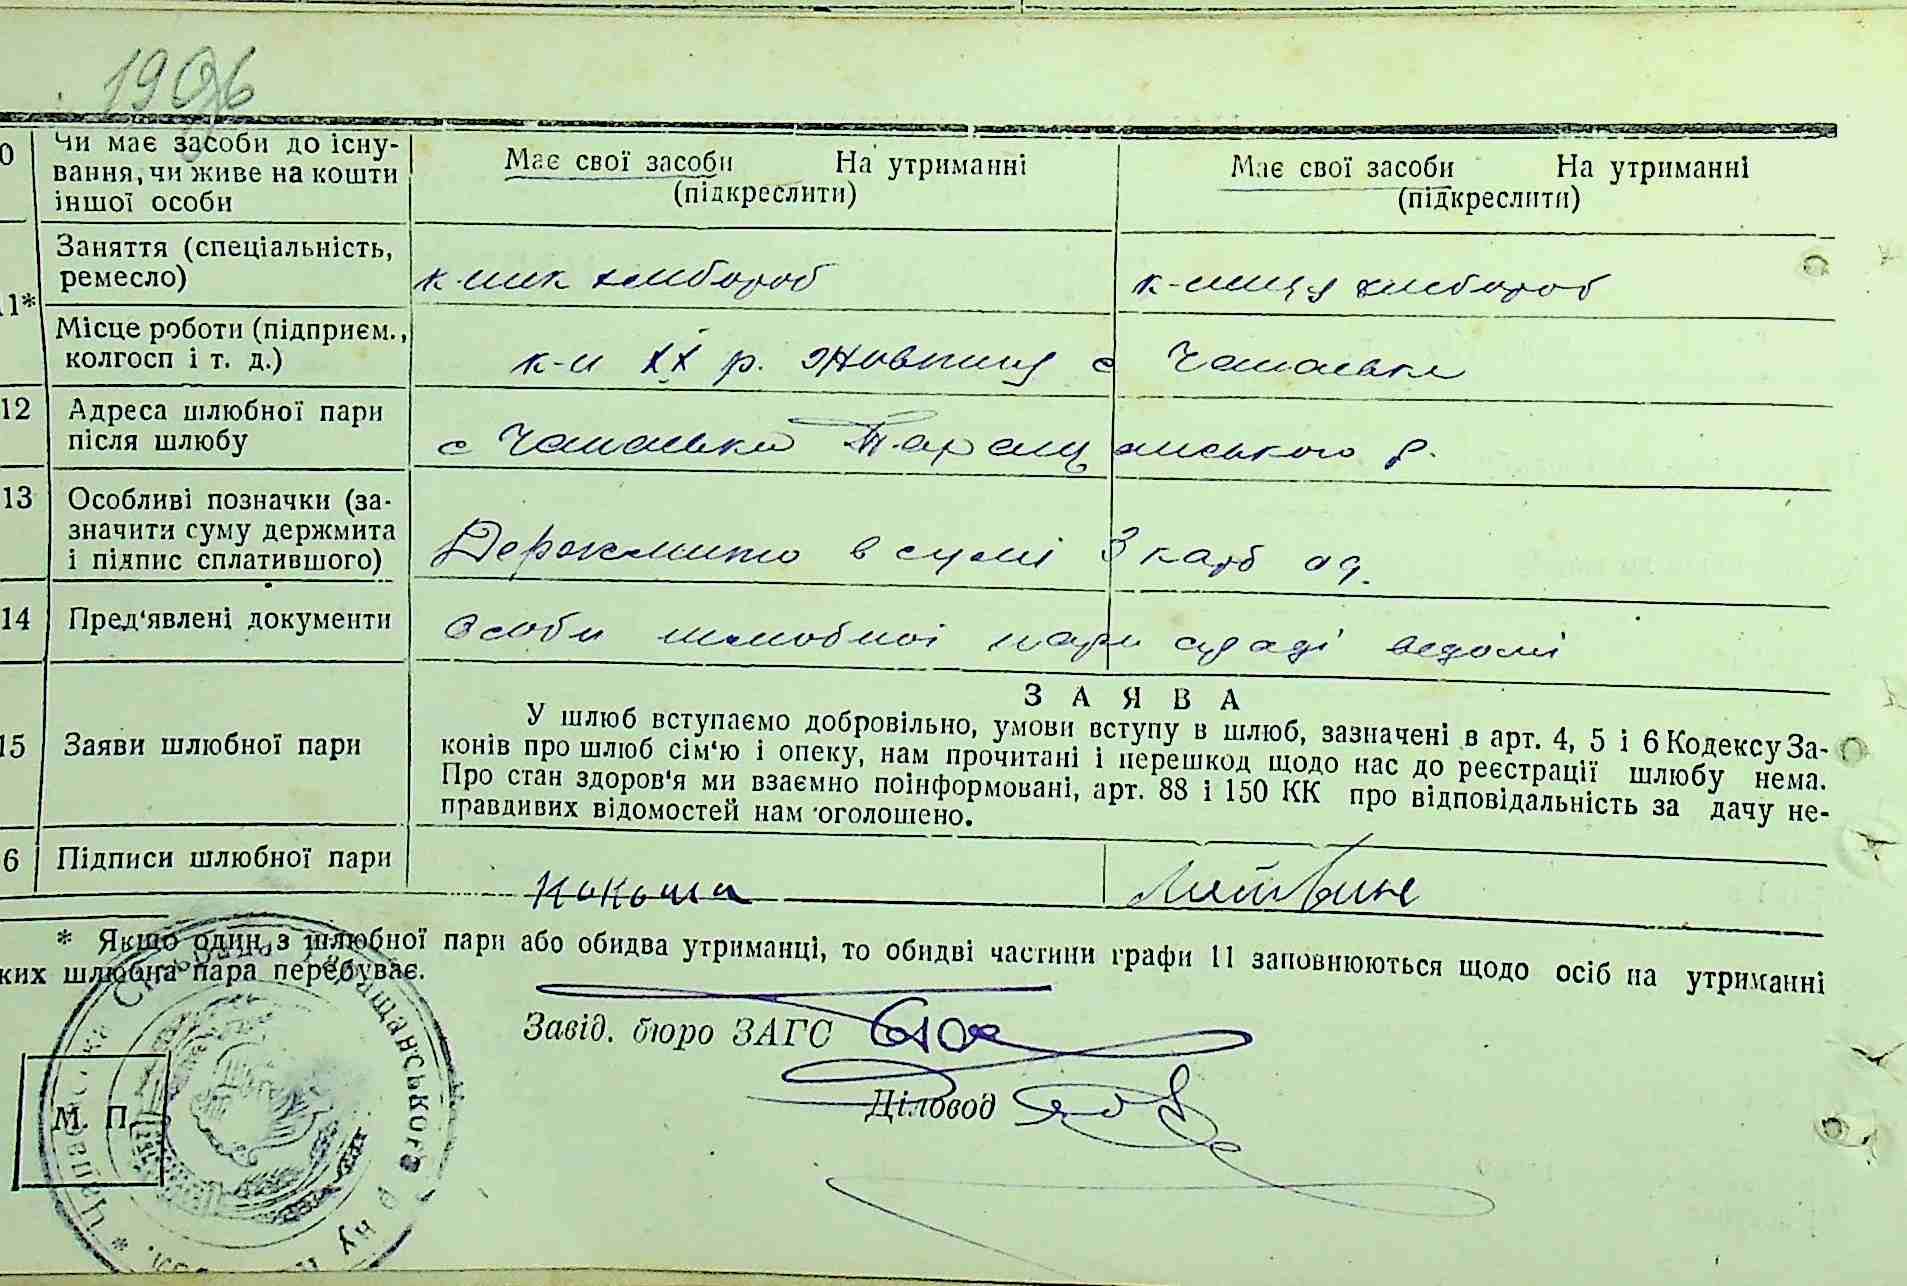 1996
0 Чи має засоби до існу-
вання, чи живе на кошти
іншої особи
Має свої засоби На утриманні
(підкреслити)
Має свої засоби На утриманні
(підкреслити)
11* Заняття (спеціальність,
ремесло)
к-ник хлібороб
к-ниця хлібороб
Місце роботи (підприєм.,
колгосп і т. д.)
к-п ХХ р. Жовтня с Чапаєвка
12 Адреса шлюбної пари
після шлюбу
с Чапаєвка Таращанського р.
13 Особливі позначки (за-
значити суму держмита
і підпис сплатившого)
Держмито в сумі 3 карб од.
14 Пред'явлені документи
Особи шлюбної пари сураді ведомі
15 Заяви шлюбної пари
ЗАЯВА
У шлюб вступаємо добровільно, умови вступу в шлюб, зазначені в арт. 4, 5 і 6 Кодексу За-
конів про шлюб сім'ю і опеку, нам прочитані і перешкод щодо нас до реєстрації шлюбу нема.
Про стан здоров'я ми взаємно поінформовані, арт. 88 і 150 КК про відповідальність за дачу не-
правдивих відомостей нам оголошено.
6 Підписи шлюбної пари
Какоша
Литвин
* Якщо один з шлюбної пари або обидва утриманці, то обидві частини графи 11 заповнюються щодо осіб на утриманні
ких шлюбна пара перебуває.
Завід. бюро ЗАГС
Діловод
М. П.
Таращанського р ну